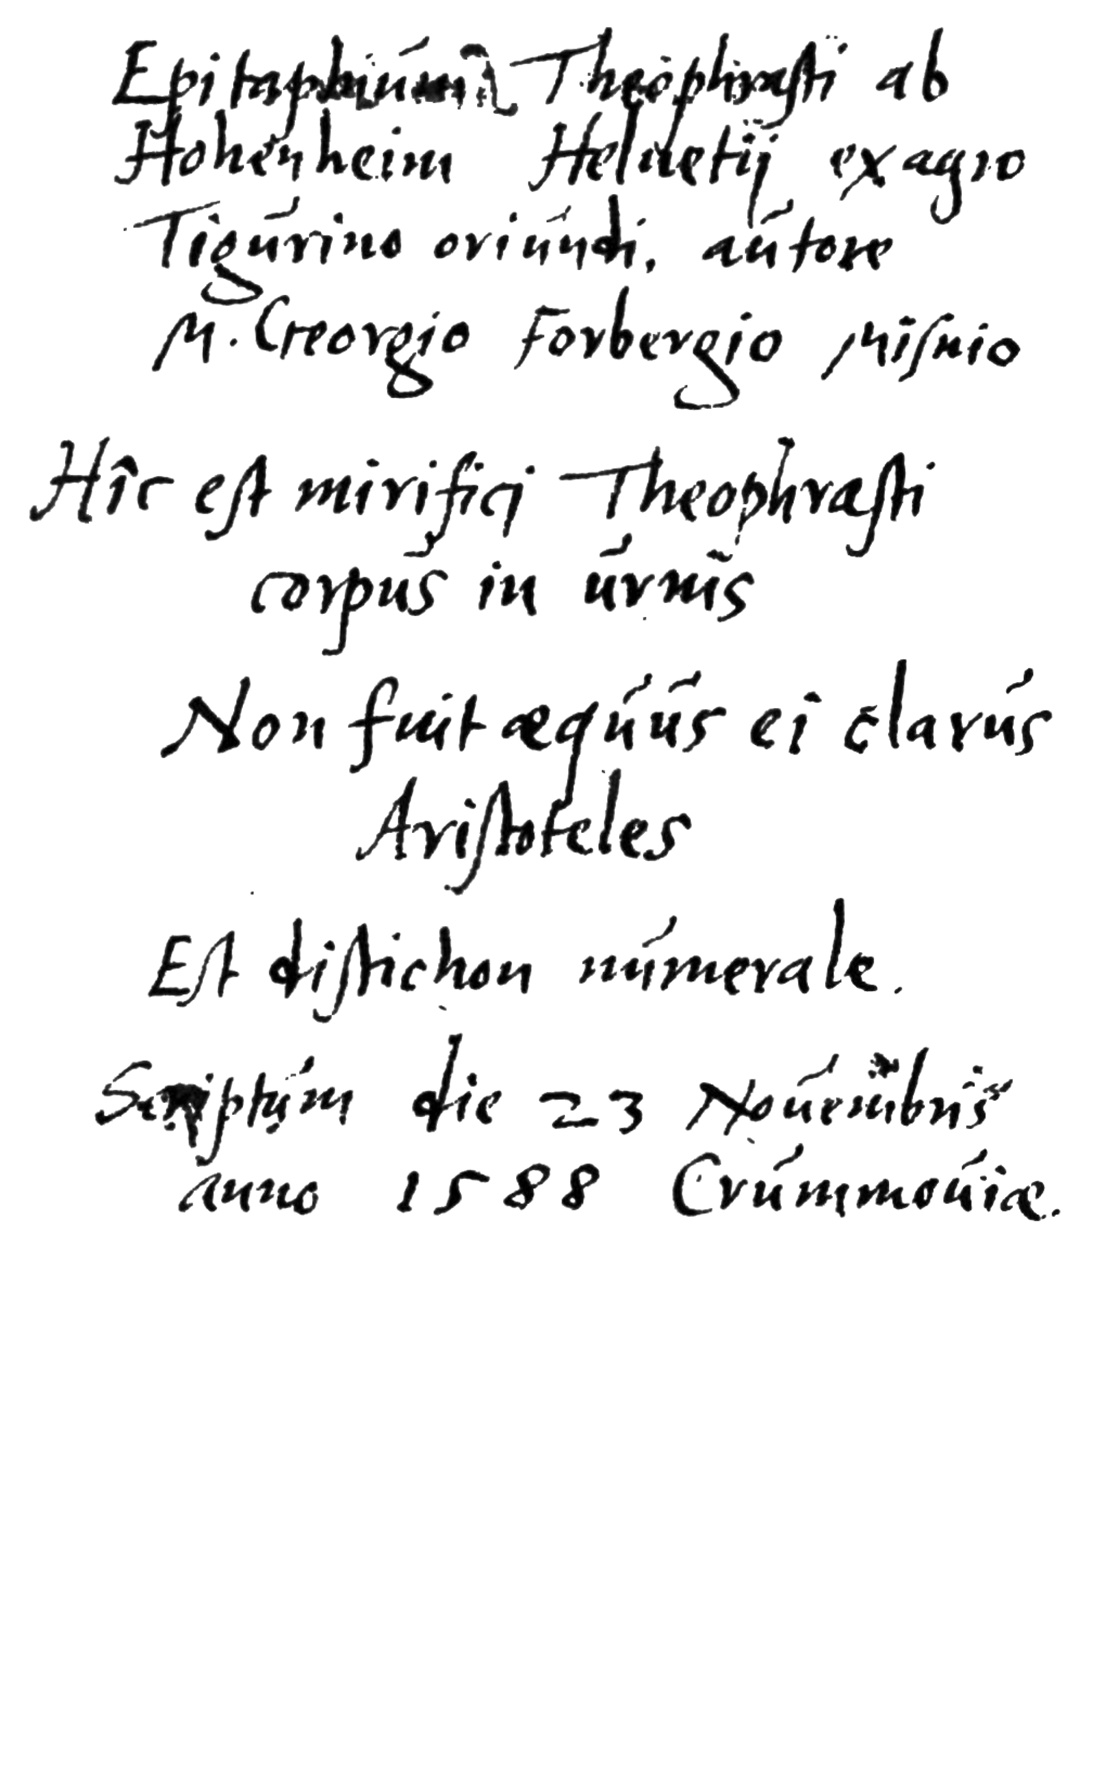 Epitaphium Theophrasti ab
Hohenheim Heluetij ex agro
Tigurino oriundi, autore
M. Georgio Forbergio Misnio
Hîc est mirifici Theophrasti
corpus in urnis
Non fuit æquus ei clarus
Aristoteles
Est distichon numerale.
Scriptum die 23 Nouembris
anno 1588 Crummouiæ.